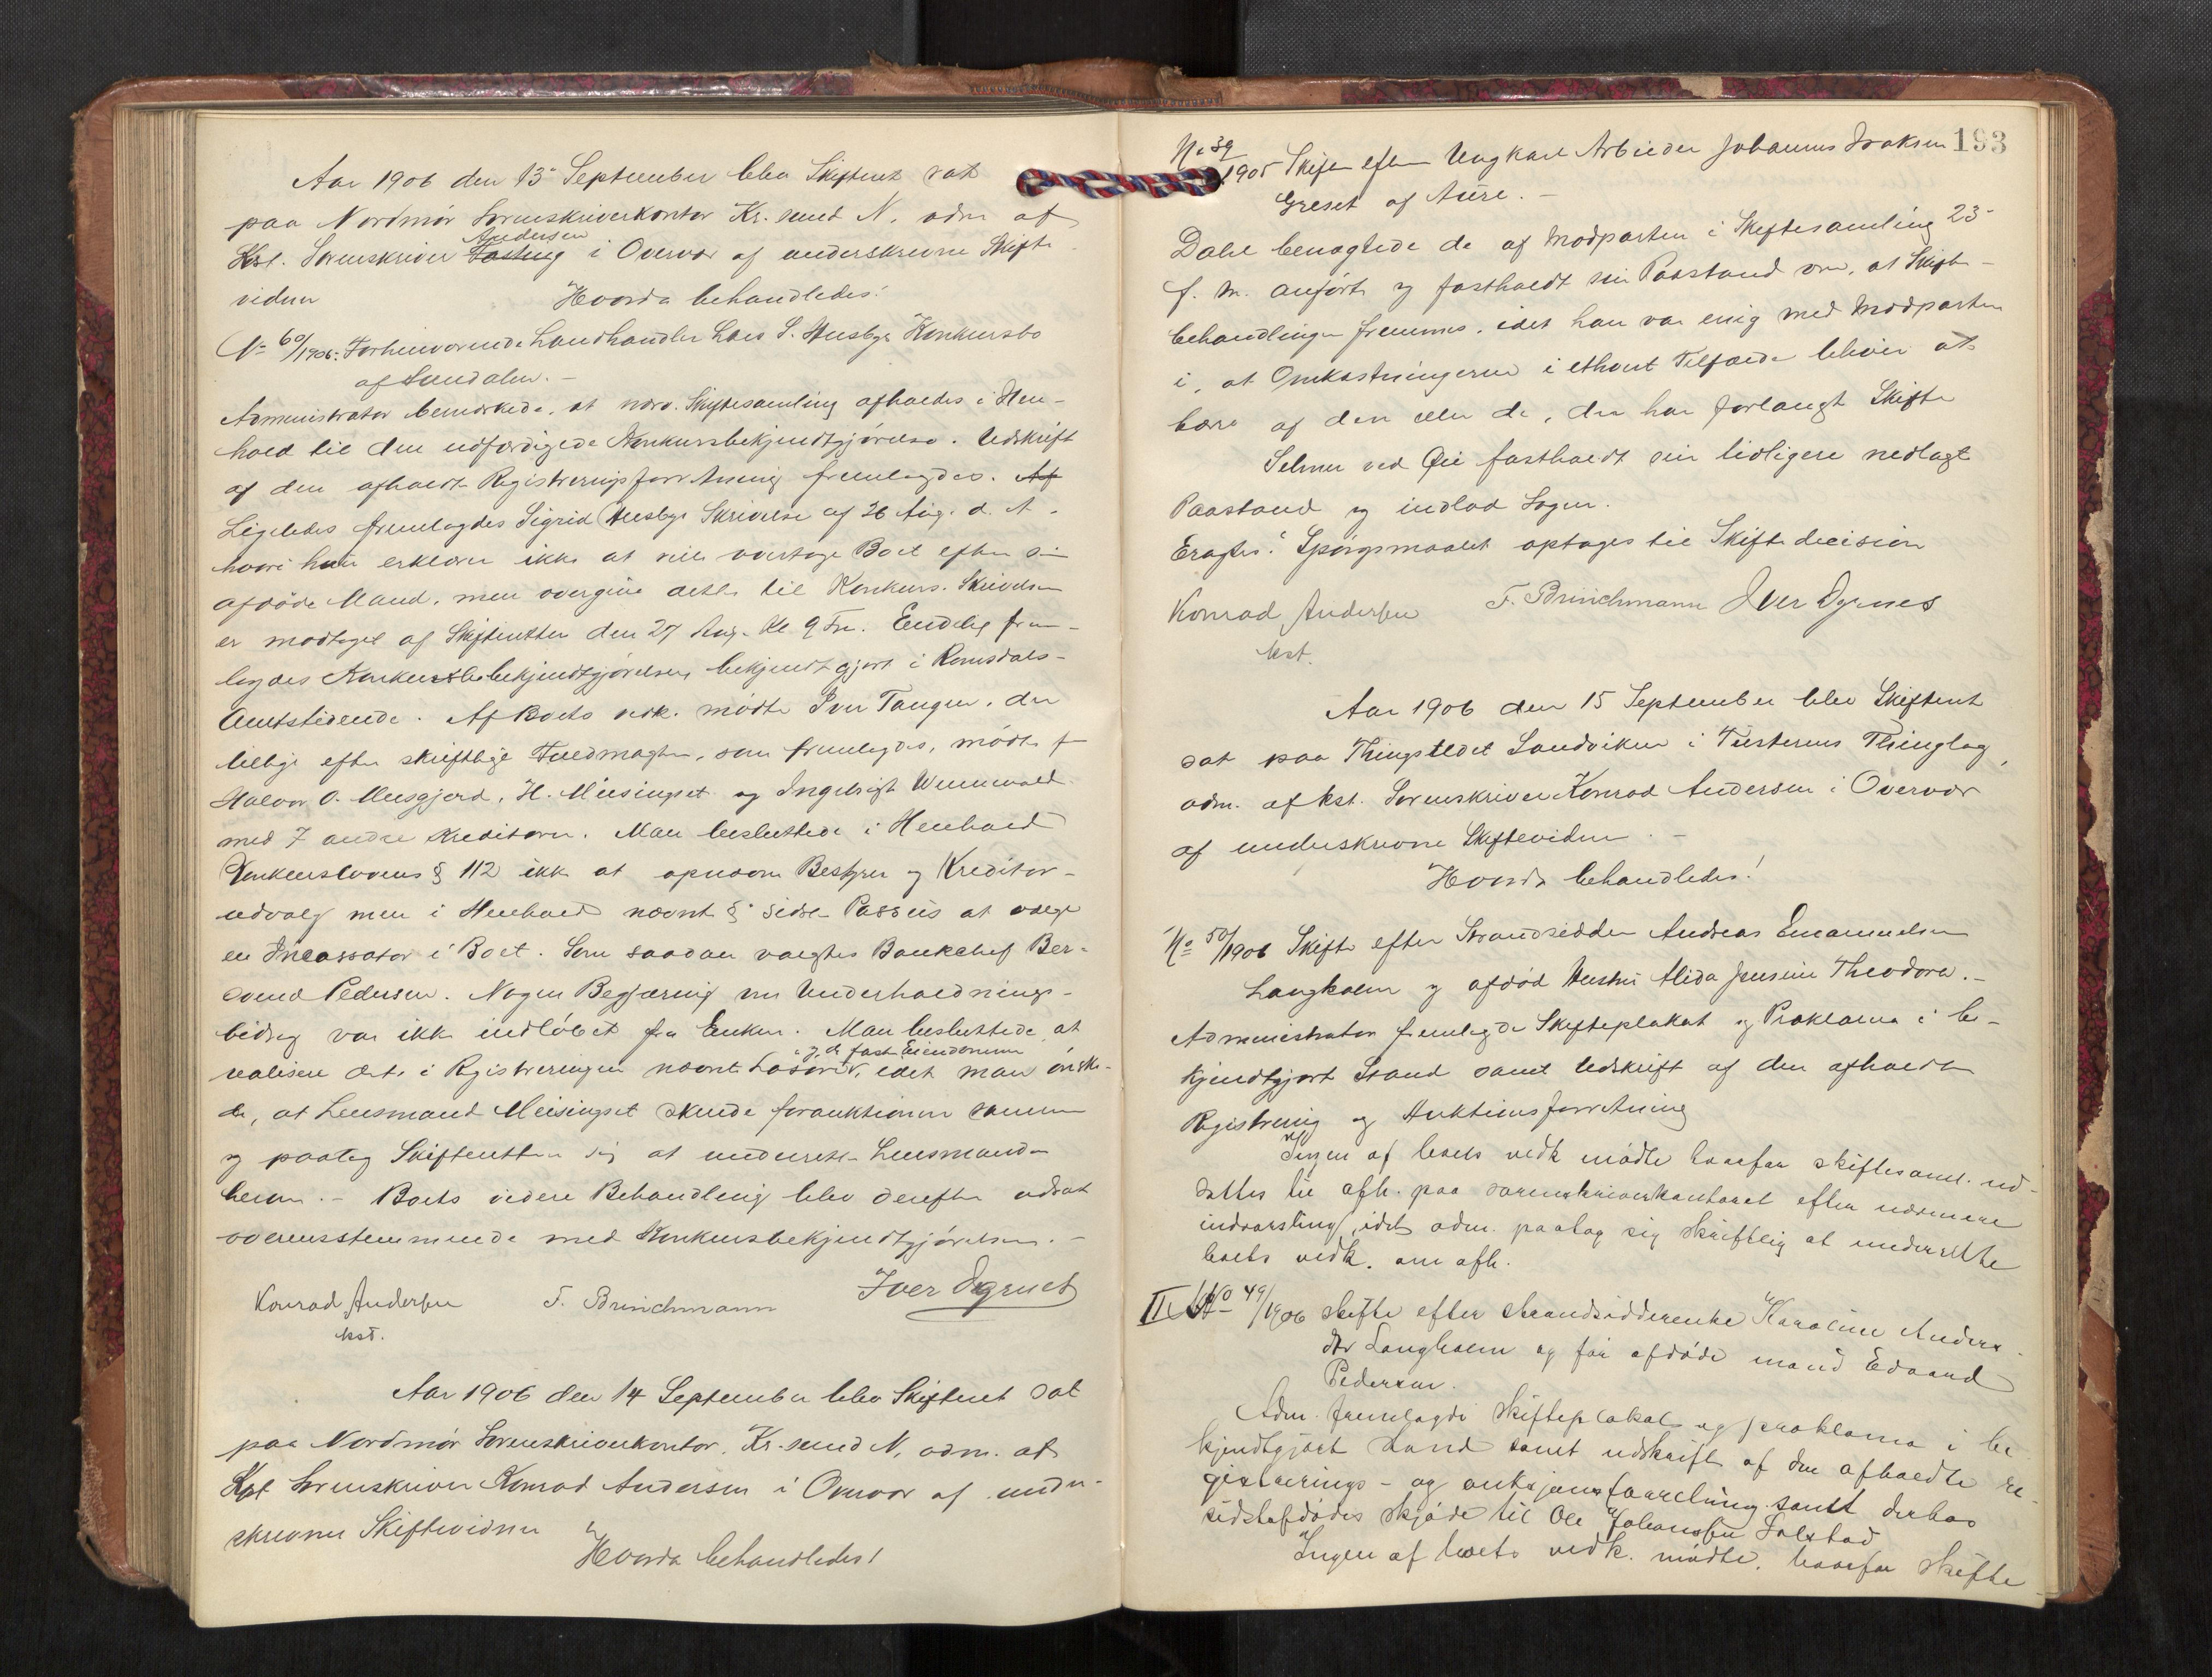 Aar 1906 den 13 September blev Skifteret sat
paa Nordmör Sorenskriverkontor Kr.sund N. adm af
Kst. Sorenskriver Andersen i Overvær af underskrevne Skifte
vidner
Hvorda behandledes:
No 60/1906: Forhenværende Landhandler Lars S. Husbys Konkursbo
af Sundalen. –
Administrator bemærkede, at nærv. Skiftesamling afholdes i Hen-
hold til den udfærdigede Konkursbekjendtgjörelse. Udskrift
af den afholdte Registreringsforretning fremlagdes. Af
Ligeledes fremlagdes Sigrid Husbys Skrivelse af 26 Aug. d. A.
hvori hun erklærer ikke at ville overtage Boet efter sin
afdöde Mand, men overgive dette til Konkurs. Skrivelsen
er modtaget af Skifteretten den 27 Aug. Kl 9 Fm. Endelig frem-
lagdes Konkursbekjendtgjörelsen bekjendtgjort i Romsdals-
Amtstidende. Af Boets vedk. mödte Iver Tangen, der
tillige efter skriftlige Fuldmagter, som fremlagdes, mödte f
Halvor O. Meisgjerd, H. Meisingset og Ingebrigt
med 7 andre Kreditorer. Man besluttede i Henhold
Konkurslovens § 112 ikke at opnævne Bestyrer og Kreditor-
udvalg men i Henhold nævnte § sidste Passus at vælge
en Incassator i Boet. Som saadan valgtes Bankchef Ber-
dvend Pedersen. Nogen Begjæring om Underholdnings-
bidrag var ikke indlöbet fra Enken. Man besluttede at
realisere det i Registreringen nævnte Lösöre og de faste Eiendomme, idet man önske-
de, at Lensmand Meisingset skulde forauktionere samme
og paatog Skifteretten sig at underrette Lensmanden
herom. – Boets videre Behandling blev derefter udsat
overensstemmende med Konkursbekjendtgjörelsen. –
Konrad Andersen F. Brinchmann Iver Ögrnes
kst.
Aar 1906 den 14 September blev Skifteret sat
paa Nordmör Sorenskriverkontor, Kr.sund N. adm. af
Kst Sorenskriver Konrad Andersen i Overvær af under-
skrevne Skiftevidner
Hvorda behandledes!
193
No 39/1905 Skifte efter Ungkarl Arbeider Johannes Isaksen
Greset af Aure. –
Dahl benegtede de af Modparten i Skiftesamling 23
f. M. anförte og fastholdt sin Paastand om, at Skifte-
behandlingen fremmes, idet han var enig med Modparten
i, at Omkostningerne i ethvert Tilfælde bliver at
bære af den eller de, der har forlangt Skifte
Selmer ved Öie fastholdt sin tidligere nedlagte
Paastand og indlod Sagen.
Eragtes: Spörgsmaalet optages til Skiftedecision
Konrad Andersen F. Brinchmann Iver Ögrnes
kst.
Aar 1906 den 15 September blev Skifteret
sat paa Thingstedet Sandviken i Tusterens Thinglag,
adm. af kst. Sorenskriver Konrad Andersen i Overvær
af underskrevne Skiftevidner. –
Hvorda behandledes!
No 50/1906 Skifte efter Strandsidder Andreas Emanuelsen
Langholm og afdöd Hustru Alida Jensine Theodora. –
Administrator fremlagde Skifteplakat og Proklama i be-
kjendtgjort Stand samt Udskrift af den afholdte
Registrering og Auktionsforretning
Ingen af boets vedk mödte hvorfor skiftesaml. ud-
sattes til afh. paa sorenskriverkontoret efter nærmere
indvarsling, idet adm. paatog sig skriftlig at underrette
boets vedk. om afh.
II No 49/1906 Skifte efter strandsidderenke Karoline Anders
dtr Langholm og för afdöde mand Edvard
Pedersen.
Adm. fremlagde skifteplakat og proklama i be-
kjendtgjort stand samt udskrift af den afholdte re-
gistrerings- og auksjonsforretning samt derhos
sidstafdödes skjöde til Ole Johansen Solstad
Ingen af boets vedk. mödte, hvorfor skifte-